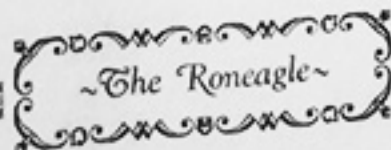 ~The Roneagle~